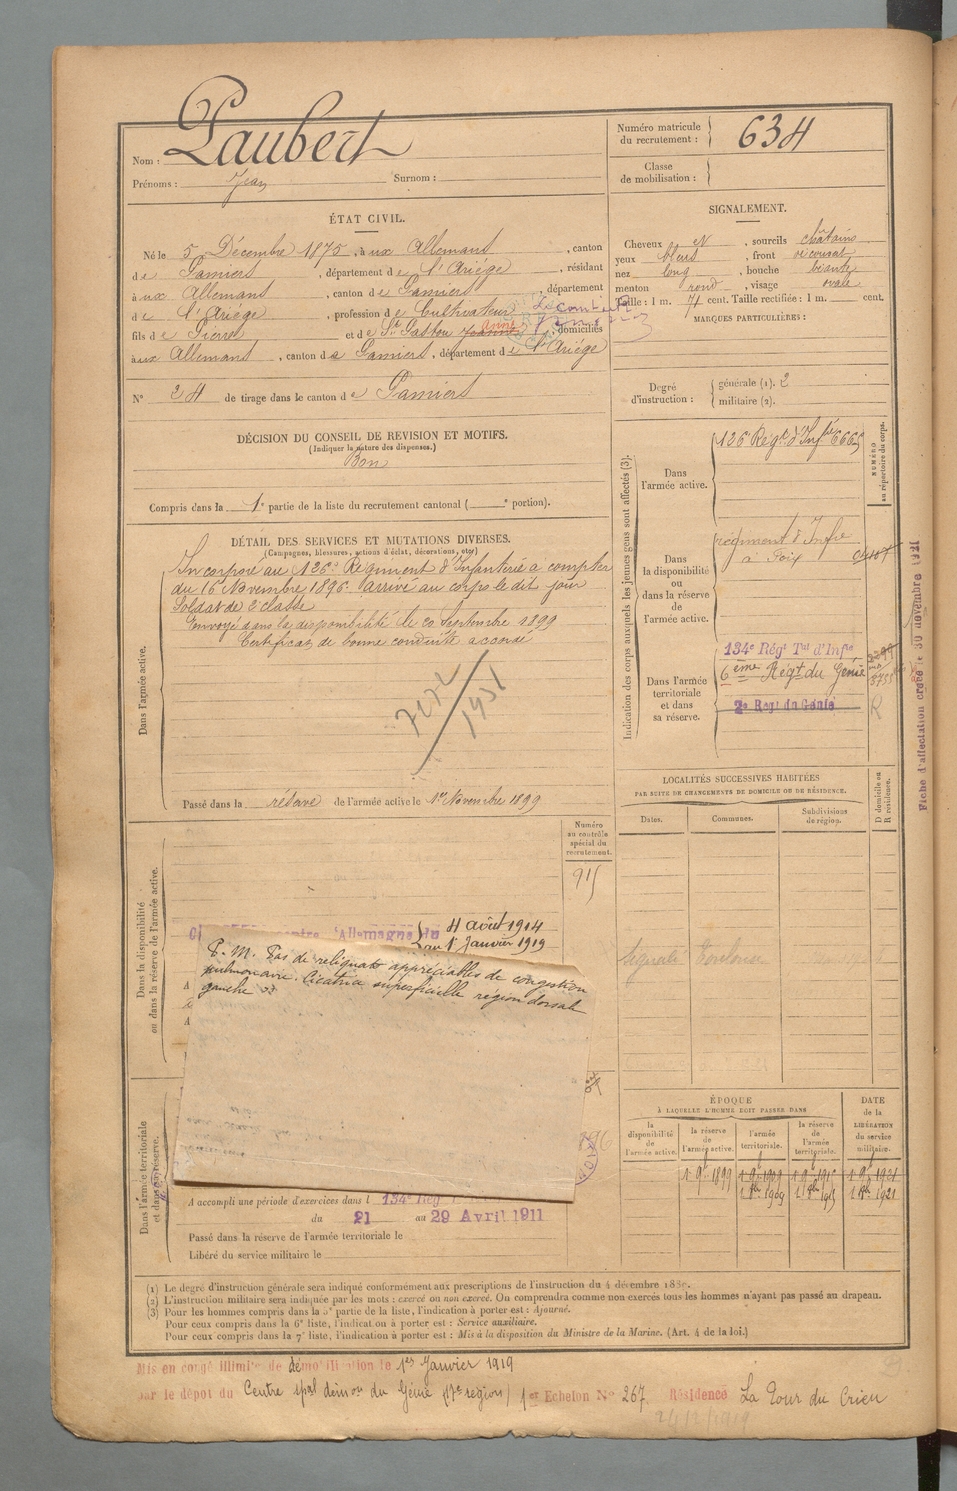 Nom : Laubert
Prénoms : Jean Surnom :
Numéro matricule du recrutement : 634
Classe de mobilisation :
ÉTAT CIVIL.
Né le 5 Décembre 1875, à ux Allemans, canton
de Pamiers, département de l'Ariége, résidant
à ux Allemans, canton de Pamiers, département
de l'Ariége, profession de Cultivateur
fils de Pierre et de St Gaston Jeanne Anne, domiciliés
à ux Allemans, canton de Pamiers, département de l'Ariége
N° 24 de tirage dans le canton de Pamiers
SIGNALEMENT.
Cheveux et, sourcils châtains
yeux bleus, front
nez long, bouche béante
menton rond, visage ovale
Taille : 1 m. 71 cent. Taille rectifiée : 1 m. cent.
MARQUES PARTICULIÈRES :
Degré d'instruction : générale (1). 2
militaire (2).
DÉCISION DU CONSEIL DE REVISION ET MOTIFS.
(Indiquer la nature des dispenses.)
Bon
Compris dans la 1e partie de la liste du recrutement cantonal ( e portion).
DÉTAIL DES SERVICES ET MUTATIONS DIVERSES.
(Campagnes, blessures, actions d'éclat, décorations, etc.)
Dans l'armée active.
Incorporé au 126e Régiment d'Infanterie à compter
du 16 Novembre 1896. Arrivé au corps le dit jour
Soldat de 2e classe
Envoyé dans la disponibilité le 20 Septembre 1899
Certificat de bonne conduite accordé
7172
1931
Passé dans la réserve de l'armée active le 1er Novembre 1899
Indication des corps auxquels les jeunes gens sont affectés (3).
NUMÉRO au répertoire du corps.
Dans l'armée active.
126e Régt d'Infie 6665
Dans la disponibilité ou dans la réserve de l'armée active.
régiment d'Infie
à Foix
Dans l'armée territoriale et dans sa réserve.
134e Régt Tal d'Infie
6ème Régt du Génie
2e Régt du Génie
R
Fiche d'affectation créée le 30 novembre 1921
LOCALITÉS SUCCESSIVES HABITÉES
PAR SUITE DE CHANGEMENTS DE DOMICILE OU DE RÉSIDENCE.
Dates.
Communes.
Subdivisions de région.
D domicile ou R résidence.
Signalé Toulouse
Dans la disponibilité ou dans la réserve de l'armée active.
Numéro au contrôle spécial du recrutement.
915
contre l'Allemagne du 4 août 1914
au 1er Janvier 1919
P. M. Pas de reliquats appréciables de congestion
pulmonaire. Cicatrice superficielle région dorsale
gauche
Dans l'armée territoriale et dans sa réserve.
A accompli une période d'exercices dans l 134e Rég
du 21 au 29 Avril 1911
Passé dans la réserve de l'armée territoriale le
Libéré du service militaire le
ÉPOQUE
À LAQUELLE L'HOMME DOIT PASSER DANS
DATE de la LIBÉRATION du service militaire.
la disponibilité de l'armée active.
la réserve de l'armée active.
l'armée territoriale.
la réserve de l'armée territoriale.
1 9bre 1899
1 9bre 1909
1 9bre 1915
1 9bre 1921
1 8bre 1909
1 8bre 1915
1 8bre 1921
(1) Le degré d'instruction générale sera indiqué conformément aux prescriptions de l'instruction du 4 décembre 1889.
(2) L'instruction militaire sera indiquée par les mots : exercé ou non exercé. On comprendra comme non exercés tous les hommes n'ayant pas passé au drapeau.
(3) Pour les hommes compris dans la 5e partie de la liste, l'indication à porter est : Ajourné.
Pour ceux compris dans la 6e liste, l'indication à porter est : Service auxiliaire.
Pour ceux compris dans la 7e liste, l'indication à porter est : Mis à la disposition du Ministre de la Marine. (Art. 4 de la loi.)
Mis en congé illimité de démobilisation le 1er Janvier 1919
par le dépôt du Centre spal démou du Génie (17e région) 1er Echelon N° 267. Résidence La Tour du Crieu
24/12/1919